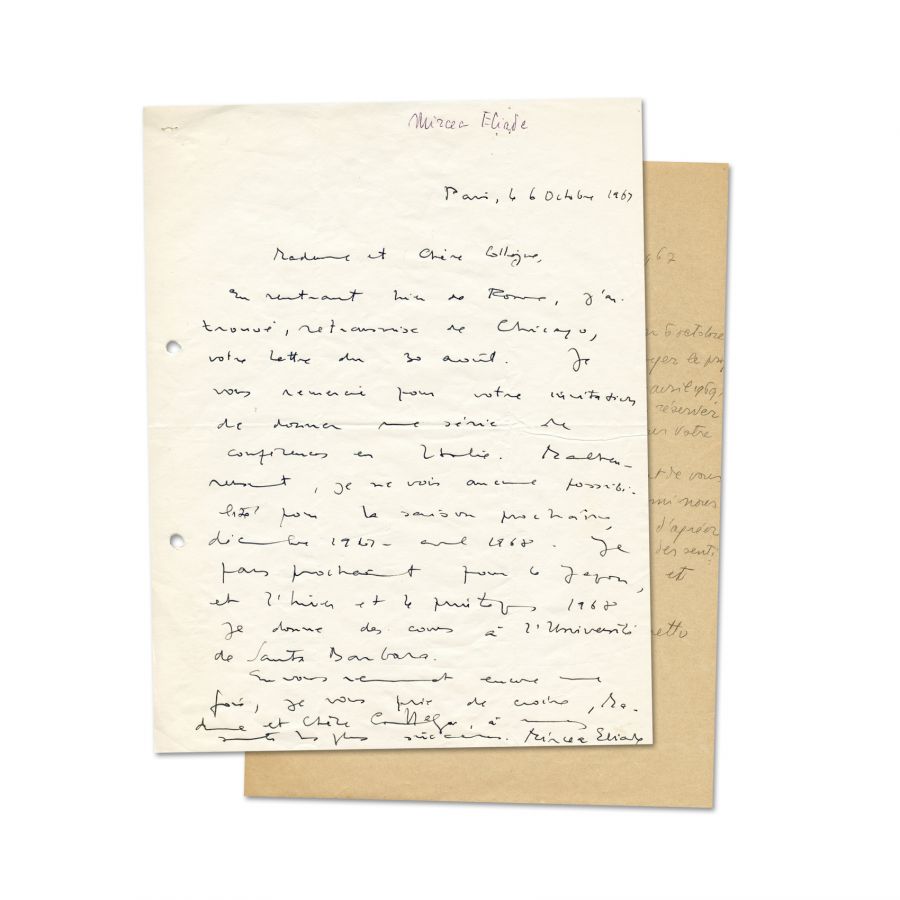 Mircea Eliade
Paris, le 6 Octobre 1967
Madame et Chère Collègue,
En rentrant hier de Rome, j'ai
trouvé, retransmise de Chicago,
votre lettre du 30 août. Je
vous remercie pour votre invitation
de donner une série de
conférences en Italie. Malheu-
reusement, je ne vois aucune possibi-
lité pour la saison prochaine,
décembre 1967 - avril 1968. Je
pars prochainement pour le Japon,
et l'hiver et le printemps 1968
je donne des cours à l'Université
de Santa Barbara.
En vous remerciant encore une
fois, je vous prie de croire, Ma-
dame et Chère Collègue, à mes
sentiments les plus sincères. Mircea Eliade
967
5 octobre
avril 1969,
réserver
votre
de vous
nous
d'agréer
des senti
et